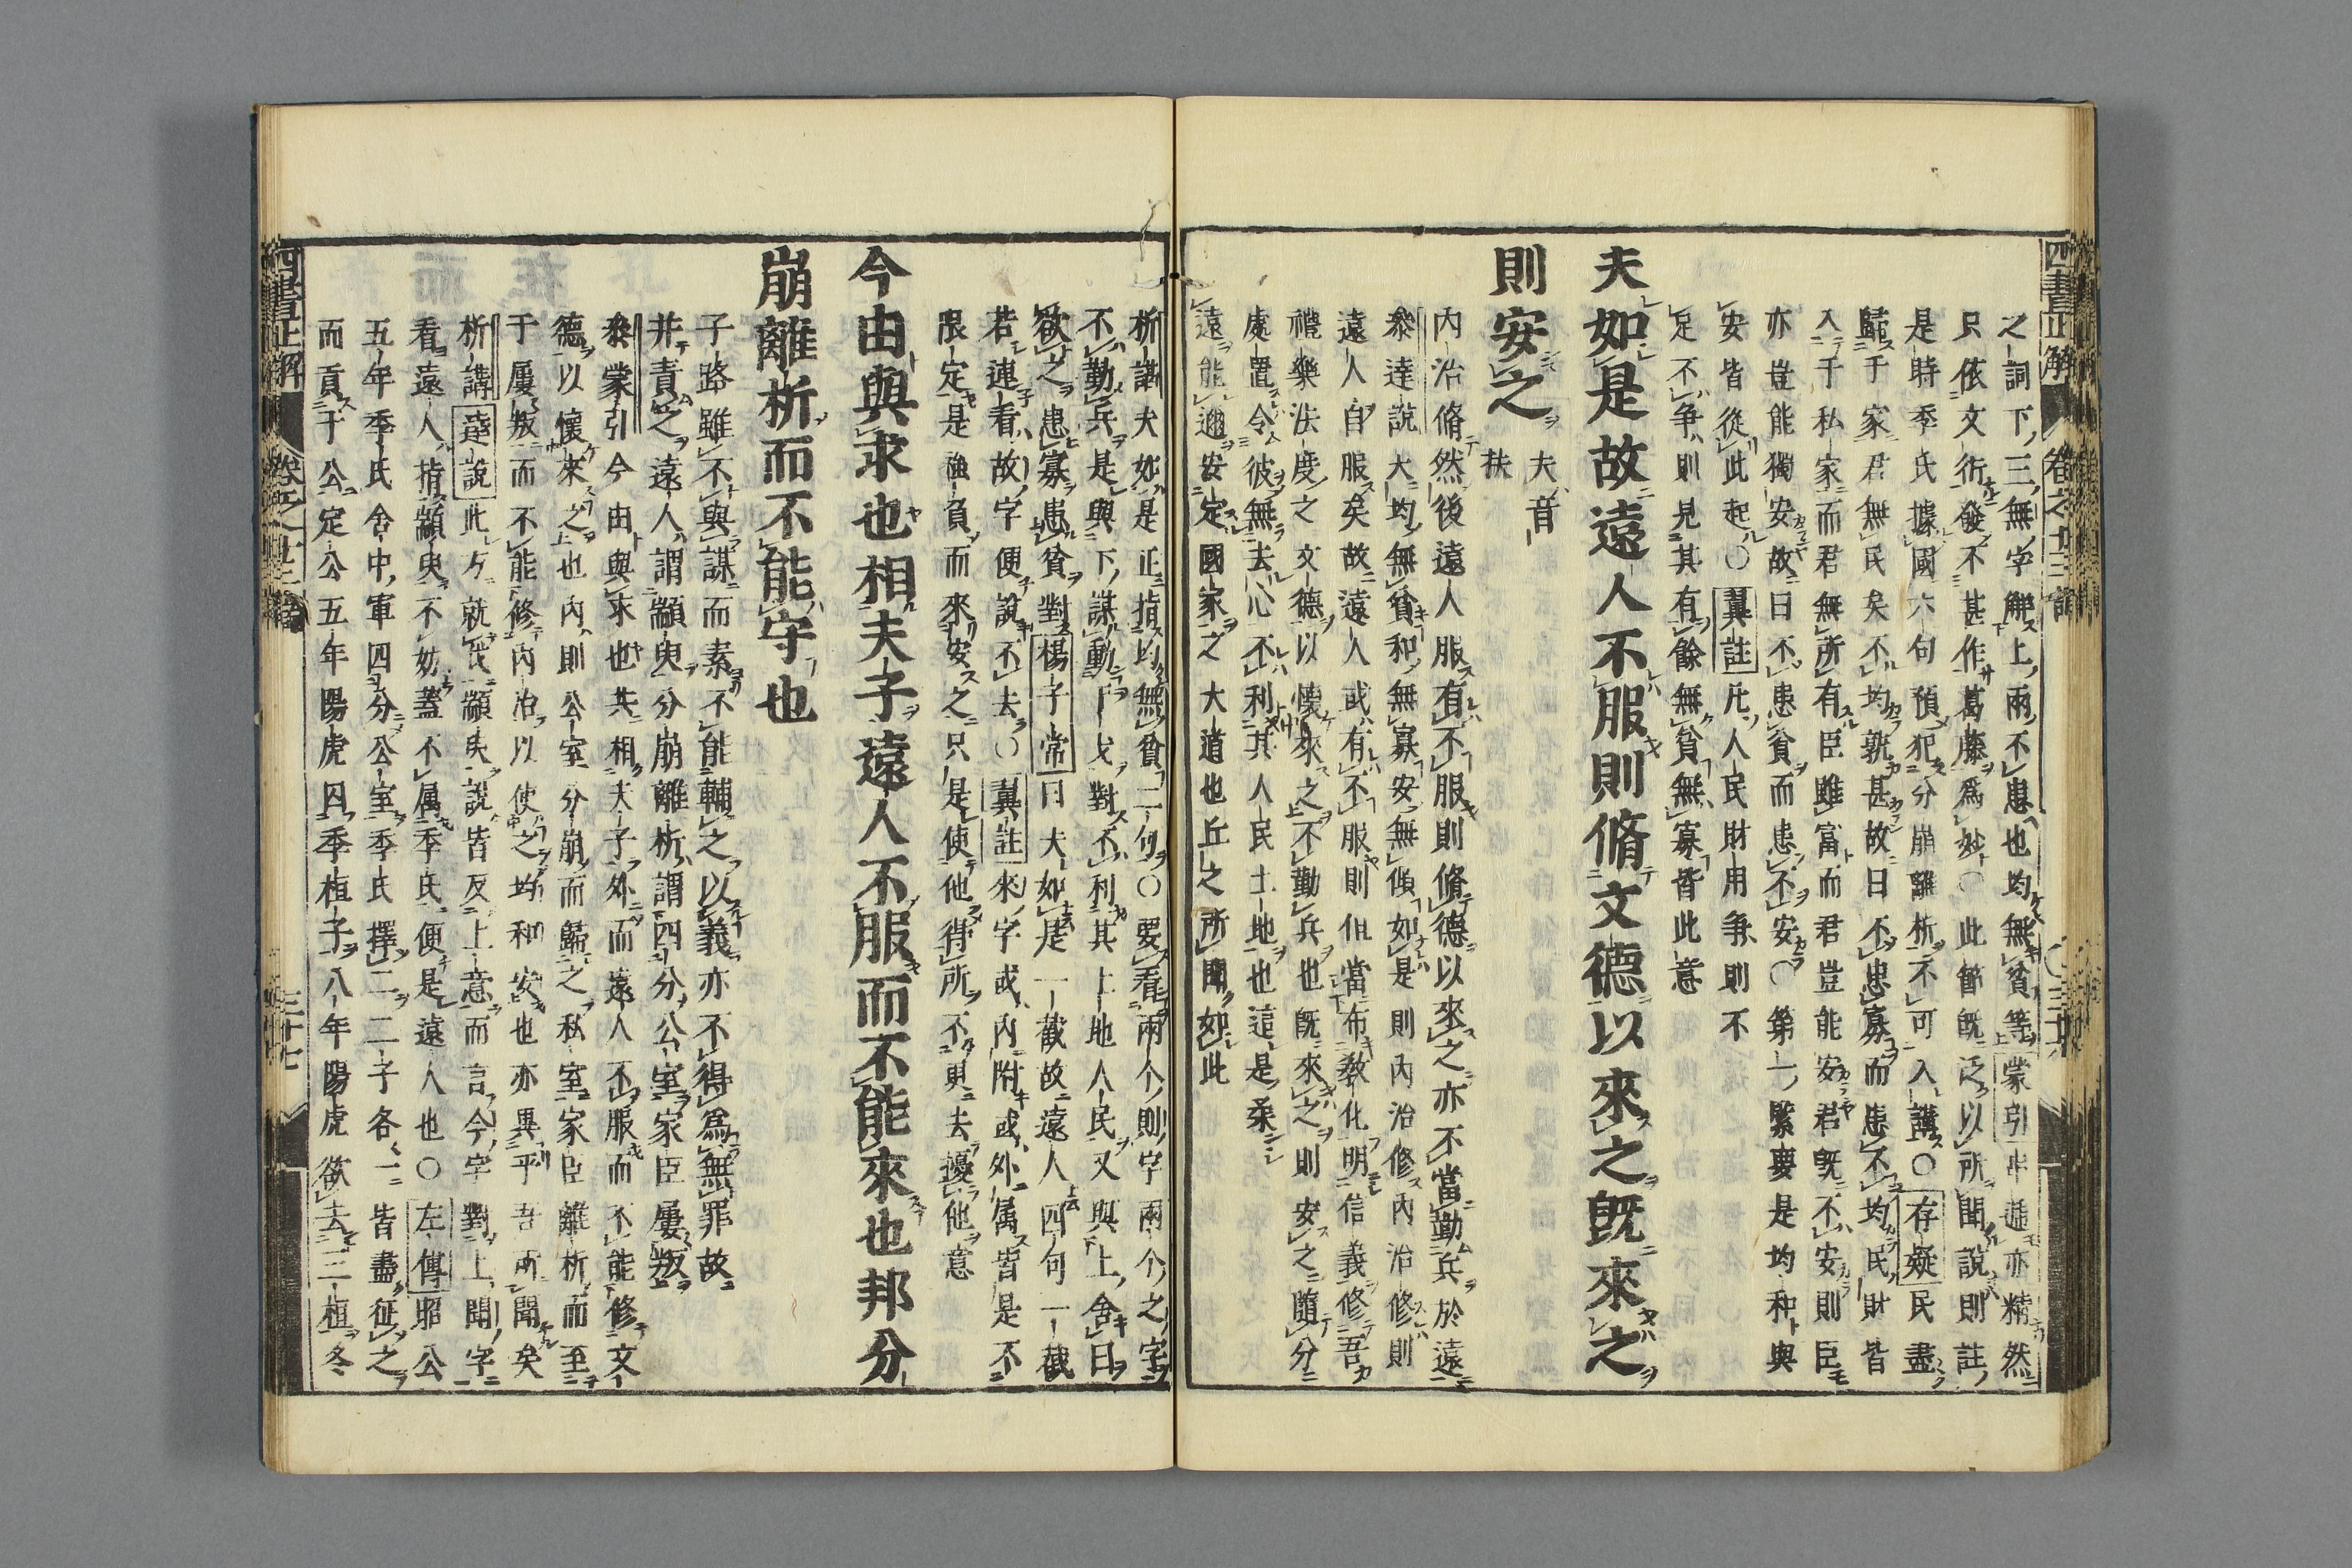 之詞下三無字解上兩不患也均無貧等蒙引串遞亦精然
只依文衍發不甚作葛藤爲妙〇此節既泛以所聞說則註
是時季氏據國六句預犯分崩離析不可入講〇存疑民盡
歸于家君無民矣不均孰甚故曰不患寡而患不均民財皆
入于私家而君無所有臣雖富而君豈能安君既不安則臣
亦豈能獨安故曰不患貧而患不安〇第一緊要是均和與
安皆從此起〇翼註凡人民財用爭則不
足不爭則見其有餘無貧無寡皆此意
夫如是故遠人不服則脩文德以來之既來之
則安之 夫音扶
內治脩然後遠人服有不服則脩德以來之亦不當勤兵於遠
參達說大均無貧和無寡安無傾如是則內治修內治修則
遠人自服矣故遠人或有不服則但當布教化明信義修吾
禮樂法度之文德以懷來之不勤兵也既來之則安之隨分
處置令彼無去心不利其人民土地也這是柔
遠能邇安定國家之大道也丘之所聞如此
析講夫如是正指均無貧二句〇要看兩个則字兩个之字
不勤兵是與下謀動干戈對不利其土地人民又與上舍曰
欲之患寡患貧對楊子常曰夫如是一截故遠人四句一截
若連看故字便說不去〇翼註來字或內附或外属皆是不
限定是強負而來安之只是使他得所不更去擾他意
今由與求也相夫子遠人不服而不能來也邦分
崩離析而不能守也
子路雖不與謀而素不能輔之以義亦不得爲無罪故
并責之遠人謂顓臾分崩離析謂四分公室家臣屢叛
參蒙引今由與求也共相夫子外而遠人不服而不能修文
德以懷來之也內則公室分崩而歸之私室家臣離析而至
于屢叛而不能修內治以使之均和安也亦異乎吾所聞矣
析講達說此方就伐顓臾說皆反上意而言今字對上聞字
看遠人指顓臾不妨蓋不属季氏便是遠人也〇左傳昭公
五年季氏舍中軍四分公室季氏擇二二子各一皆盡征之
而貢于公定公五年陽虎囚季桓子八年陽虎欲去三桓冬